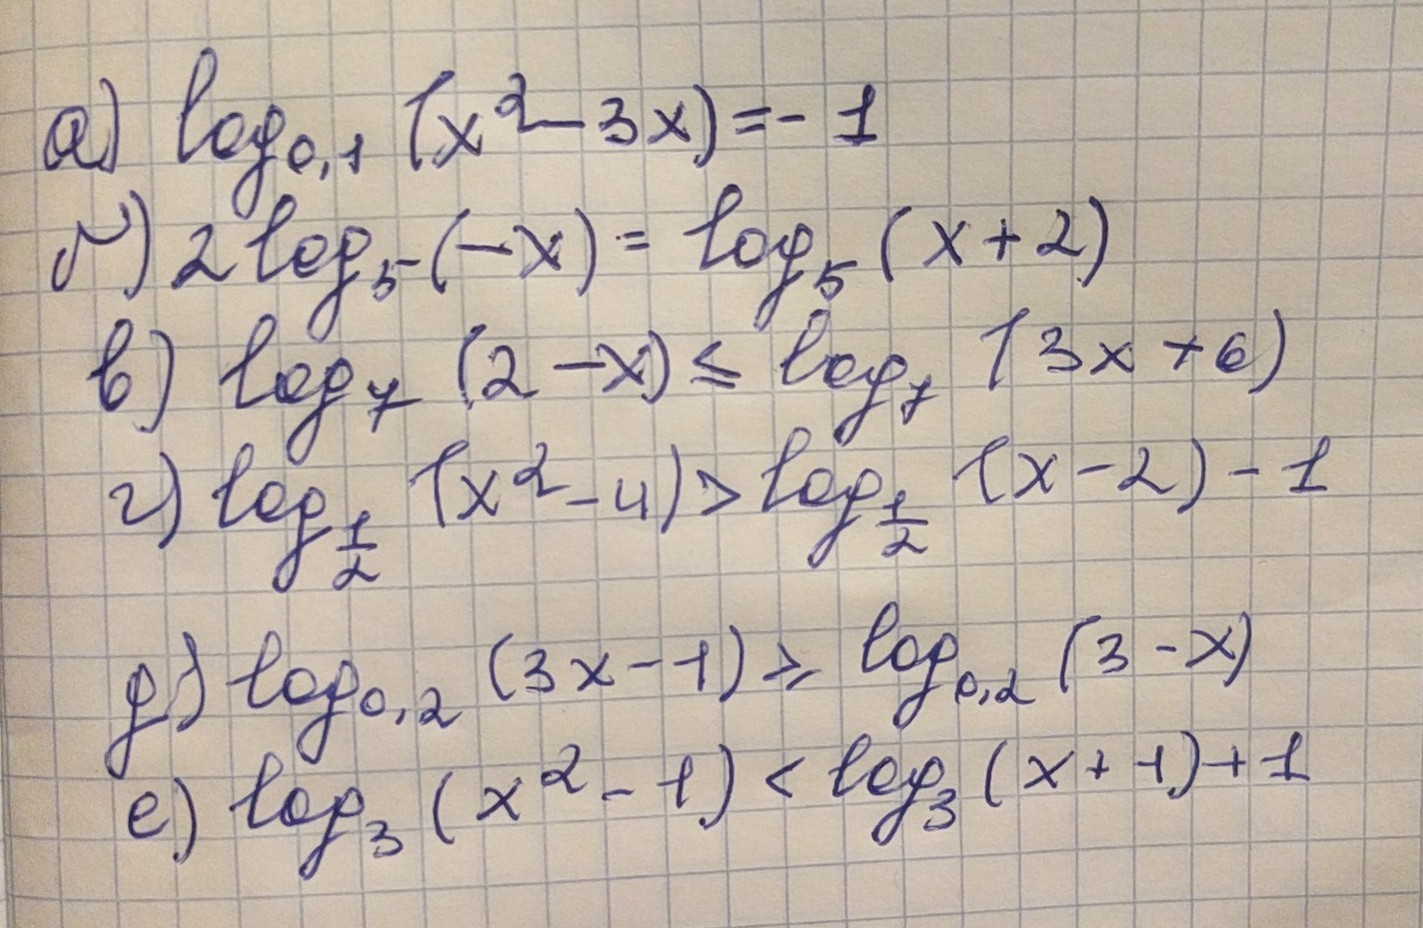 а) log₀,₁ (x² - 3x) = - 1
б) 2 log₅ (-x) = log₅ (x + 2)
в) log₇ (2 - x) ≤ log₇ (3x + 6)
г) log_{1/2} (x² - 4) > log_{1/2} (x - 2) - 1
д) log₀,₂ (3x - 1) ≥ log₀,₂ (3 - x)
е) log₃ (x² - 1) < log₃ (x + 1) + 1